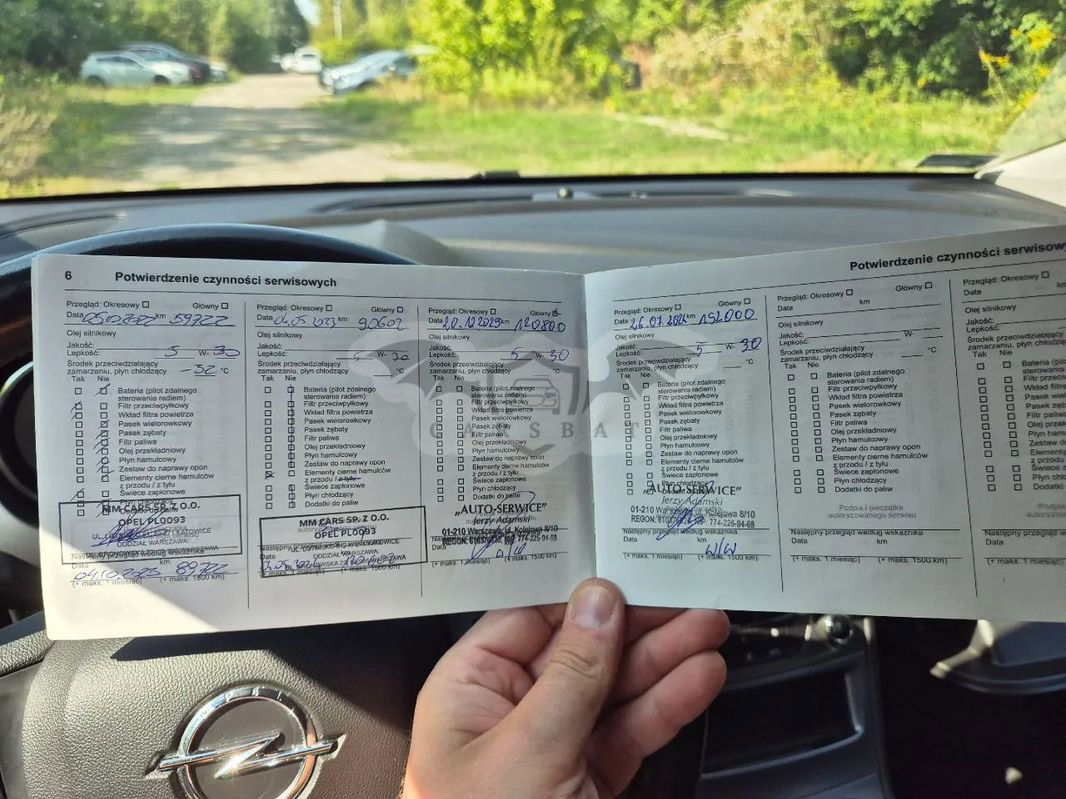 6 Potwierdzenie czynności serwisowych
Przegląd: Okresowy Główny
Data 05.10.2022 km 59722
Olej silnikowy
Jakość:
Lepkość: 5 W- 30
Środek przeciwdziałający
zamarzaniu, płyn chłodzący -32 °C
Tak Nie
Bateria (pilot zdalnego
sterowania radiem)
Filtr przeciwpyłkowy
Wkład filtra powietrza
Pasek wielorowkowy
Pasek zębaty
Filtr paliwa
Olej przekładniowy
Płyn hamulcowy
Zestaw do naprawy opon
Elementy cierne hamulców
z przodu / z tyłu
Świece zapłonowe
MM CARS SP. Z O.O.
OPEL PL0093
ODDZIAŁ WARSZAWA
Data
04.10.2023 89722
(+ maks. 1 miesiąc) (+ maks. 1500 km)
Przegląd: Okresowy Główny
Data 04.05.2023 km 90602
Olej silnikowy
Jakość:
Lepkość: 5 W- 30
Środek przeciwdziałający
zamarzaniu, płyn chłodzący °C
Tak Nie
Bateria (pilot zdalnego
sterowania radiem)
Filtr przeciwpyłkowy
Wkład filtra powietrza
Pasek wielorowkowy
Pasek zębaty
Filtr paliwa
Olej przekładniowy
Płyn hamulcowy
Zestaw do naprawy opon
Elementy cierne hamulców
z przodu / z tyłu
Świece zapłonowe
Płyn chłodzący
Dodatki do paliw
MM CARS SP. Z O.O.
OPEL PL0093
ODDZIAŁ WARSZAWA
(+ maks. 1500 km)
Przegląd: Okresowy Główny
Data 20.10.2023 km 120800
Olej silnikowy
Jakość:
Lepkość: 5 W- 30
Środek przeciwdziałający
zamarzaniu, płyn chłodzący °C
Tak Nie
Bateria (pilot zdalnego
sterowania radiem)
Filtr przeciwpyłkowy
Wkład filtra powietrza
Pasek wielorowkowy
Pasek zębaty
Filtr paliwa
Olej przekładniowy
Płyn hamulcowy
Zestaw do naprawy opon
Elementy cierne hamulców
z przodu / z tyłu
Świece zapłonowe
Płyn chłodzący
Dodatki do paliw
„AUTO-SERWICE”
Jerzy Adamski
01-210 Warszawa, ul. Kolejowa 8/10
Data
(+ maks. 1 miesiąc) (+ maks. 1500 km)
Potwierdzenie czynności serwisowy
Przegląd: Okresowy Główny
Data 26.07.2024 km 152000
Olej silnikowy
Jakość:
Lepkość: 5 W- 30
Środek przeciwdziałający
zamarzaniu, płyn chłodzący °C
Tak Nie
Bateria (pilot zdalnego
sterowania radiem)
Filtr przeciwpyłkowy
Wkład filtra powietrza
Pasek wielorowkowy
Pasek zębaty
Filtr paliwa
Olej przekładniowy
Płyn hamulcowy
Zestaw do naprawy opon
Elementy cierne hamulców
z przodu / z tyłu
Świece zapłonowe
Płyn chłodzący
Dodatki do paliw
„AUTO-SERWICE”
Jerzy Adamski
01-210 Warszawa, ul. Kolejowa 8/10
Następny przegląd według wskaźnika
Data
(+ maks. 1 miesiąc) (+ maks. 1500 km)
Przegląd: Okresowy Główny
Data km
Olej silnikowy
Jakość:
Lepkość: W-
Środek przeciwdziałający
zamarzaniu, płyn chłodzący °C
Tak Nie
Bateria (pilot zdalnego
sterowania radiem)
Filtr przeciwpyłkowy
Wkład filtra powietrza
Pasek wielorowkowy
Pasek zębaty
Filtr paliwa
Olej przekładniowy
Płyn hamulcowy
Zestaw do naprawy opon
Elementy cierne hamulców
z przodu / z tyłu
Świece zapłonowe
Płyn chłodzący
Dodatki do paliw
Podpis i pieczątka
autoryzowanego serwisu
Następny przegląd według wskaźnika
Data km
(+ maks. 1 miesiąc) (+ maks. 1500 km)
Przegląd: Okresowy
Data
Olej silnikowy
Jakość:
Lepkość:
Środek przeciwdziałający
zamarzaniu, płyn chłodzący
Tak Nie
CARSBAT